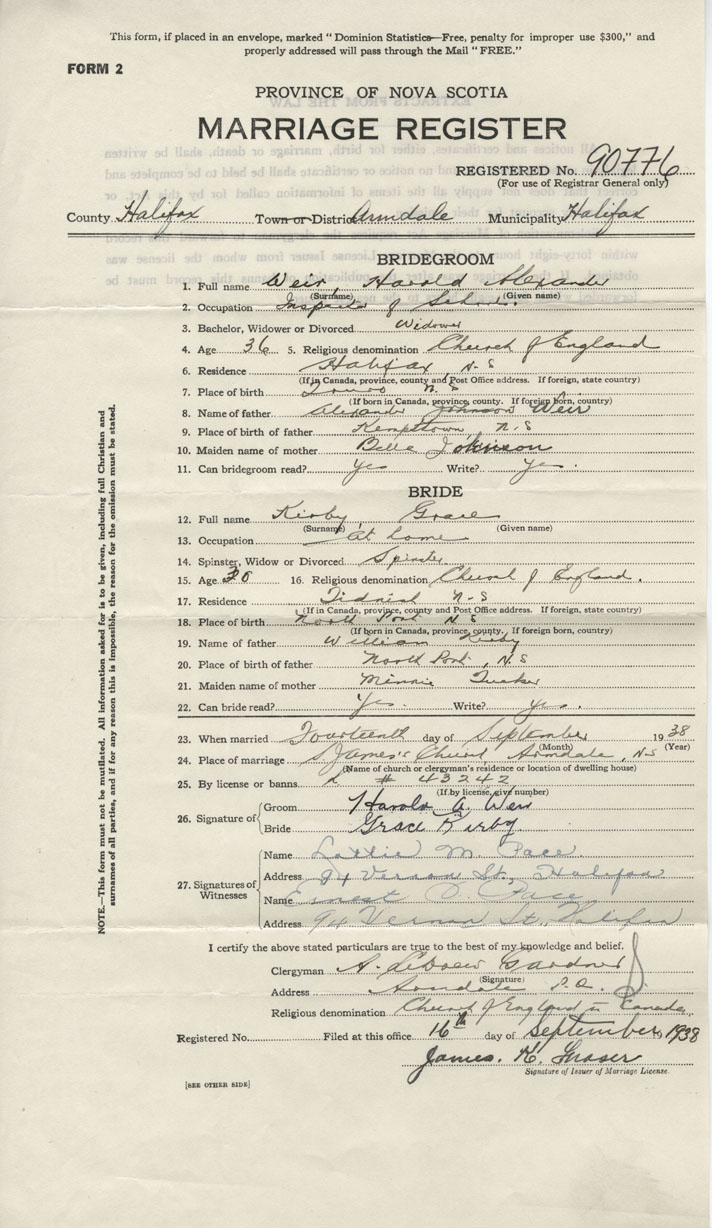 This form, if placed in an envelope, marked “ Dominion Statistics—Free, penalty for improper use $300,” and
properly addressed will pass through the Mail “FREE.”
FORM 2
PROVINCE OF NOVA SCOTIA
MARRIAGE REGISTER
REGISTERED No. 90776
(For use of Registrar General only)
County Halifax Town or District Armdale Municipality Halifax
BRIDEGROOM
1. Full name Weir, Harold Alexander
(Surname) (Given name)
2. Occupation Inspector of Schools.
3. Bachelor, Widower or Divorced Widower
4. Age 36 5. Religious denomination Church of England
6. Residence Halifax, N-S
(If in Canada, province, county and Post Office address. If foreign, state country)
7. Place of birth Truro N.S
(If born in Canada, province, county. If foreign born, country)
8. Name of father Alexander Johnson Weir
9. Place of birth of father Kemptown N-S
10. Maiden name of mother Belle Johnson
11. Can bridegroom read? Yes Write? Yes.
BRIDE
12. Full name Kirby, Grace
(Surname) (Given name)
13. Occupation at home
14. Spinster, Widow or Divorced Spinster
15. Age 30 16. Religious denomination Church of England.
17. Residence Tidnish N-S
(If in Canada, province, county and Post Office address. If foreign, state country)
18. Place of birth North Port N S
(If born in Canada, province, county. If foreign born, country)
19. Name of father William Kirby
20. Place of birth of father North Port, N.S
21. Maiden name of mother Minnie Tucker
22. Can bride read? Yes. Write? Yes.
23. When married Fourteenth day of September 1938
(Month) (Year)
24. Place of marriage S. James's Church Armdale, N-S
(Name of church or clergyman's residence or location of dwelling house)
25. By license or banns L # 43242
(If by license, give number)
26. Signature of Groom Harold A. Weir
Bride Grace Kirby
27. Signatures of Witnesses Name Lottie M. Pace.
Address 94 Vernon St, Halifax
Name Ernest D. Pace
Address 94 Vernon St., Halifax
NOTE.—This form must not be mutilated. All information asked for is to be given, including full Christian and
surnames of all parties, and if for any reason this is impossible, the reason for the omission must be stated.
I certify the above stated particulars are true to the best of my knowledge and belief.
Clergyman A. Gardner
(Signature)
Address Armdale P.O.
Religious denomination Church of England in Canada
Registered No. Filed at this office 16th day of September, 1938
James. H. Fraser
Signature of Issuer of Marriage License.
[SEE OTHER SIDE]